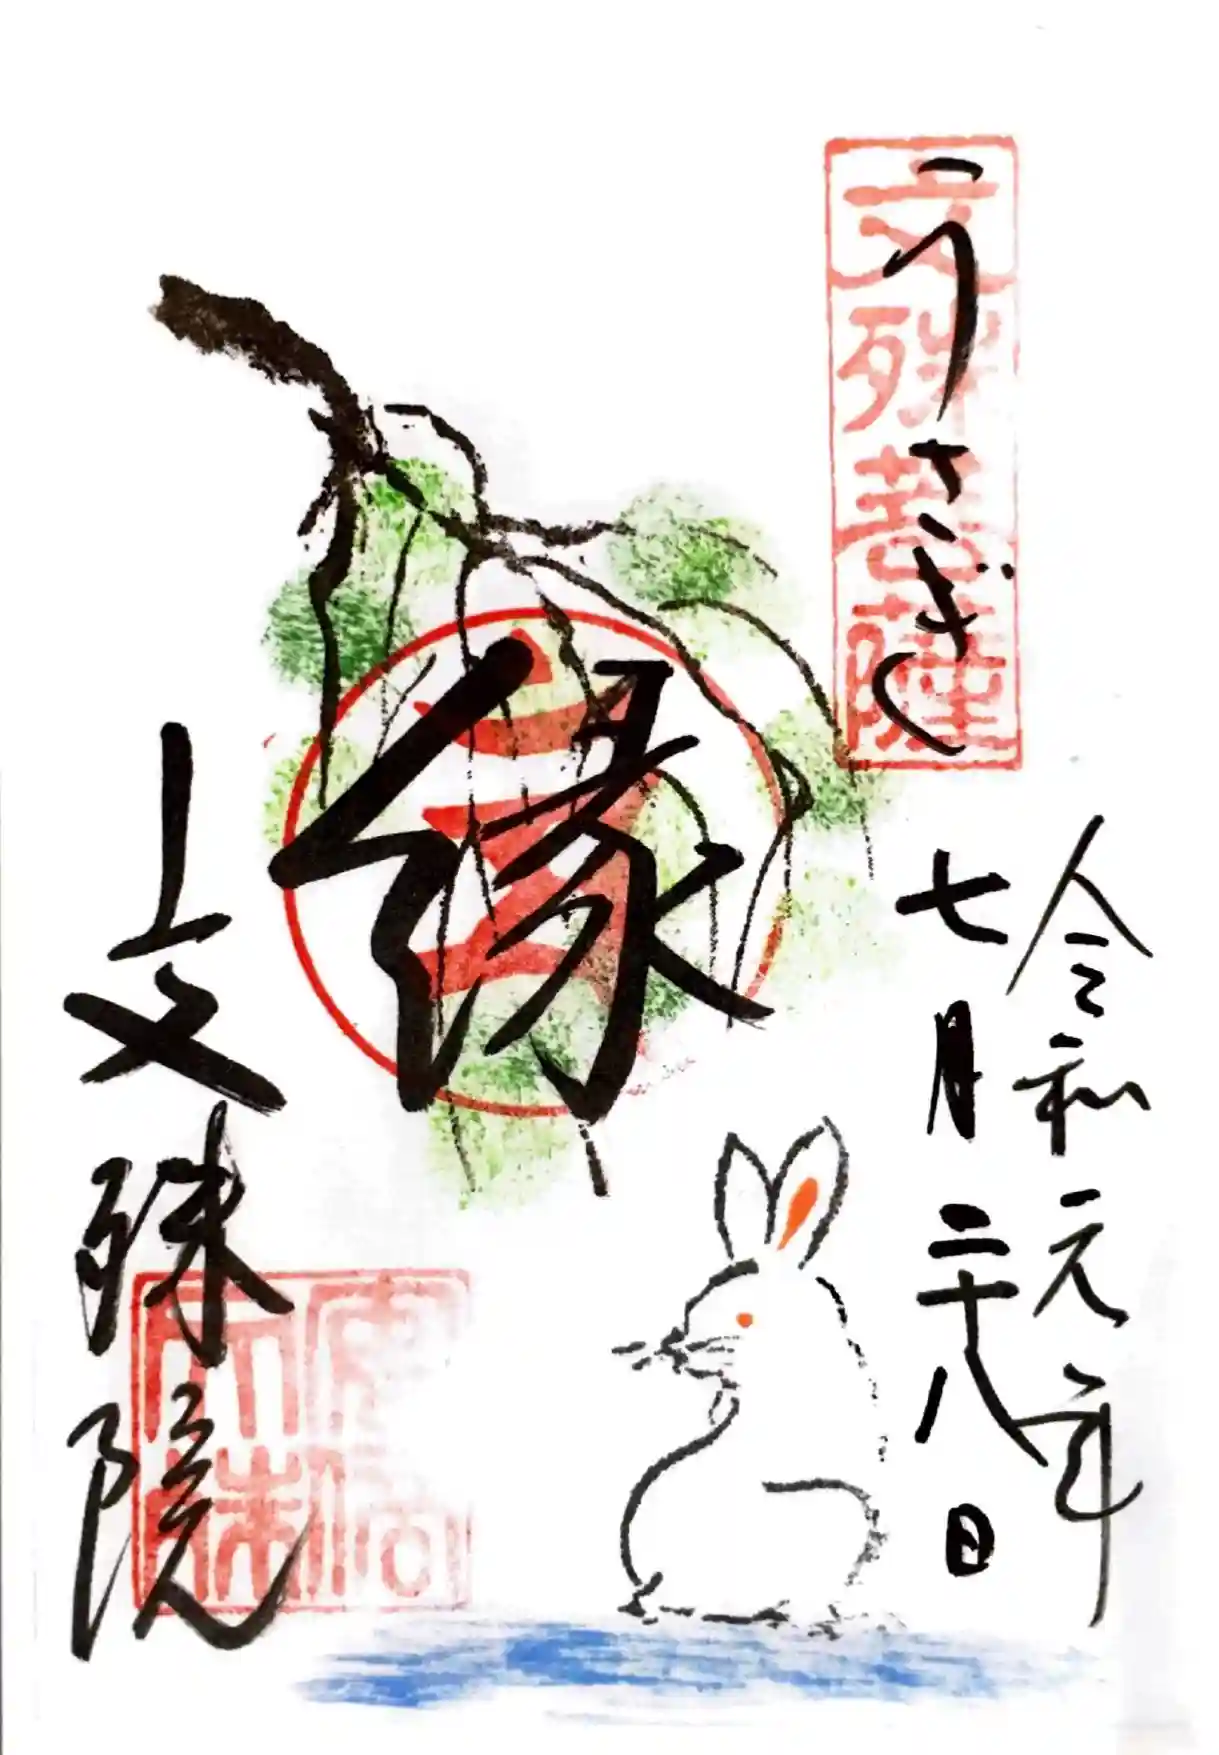 うさぎし
文殊菩薩
令和元年
七月二十八日
縁
上文殊院